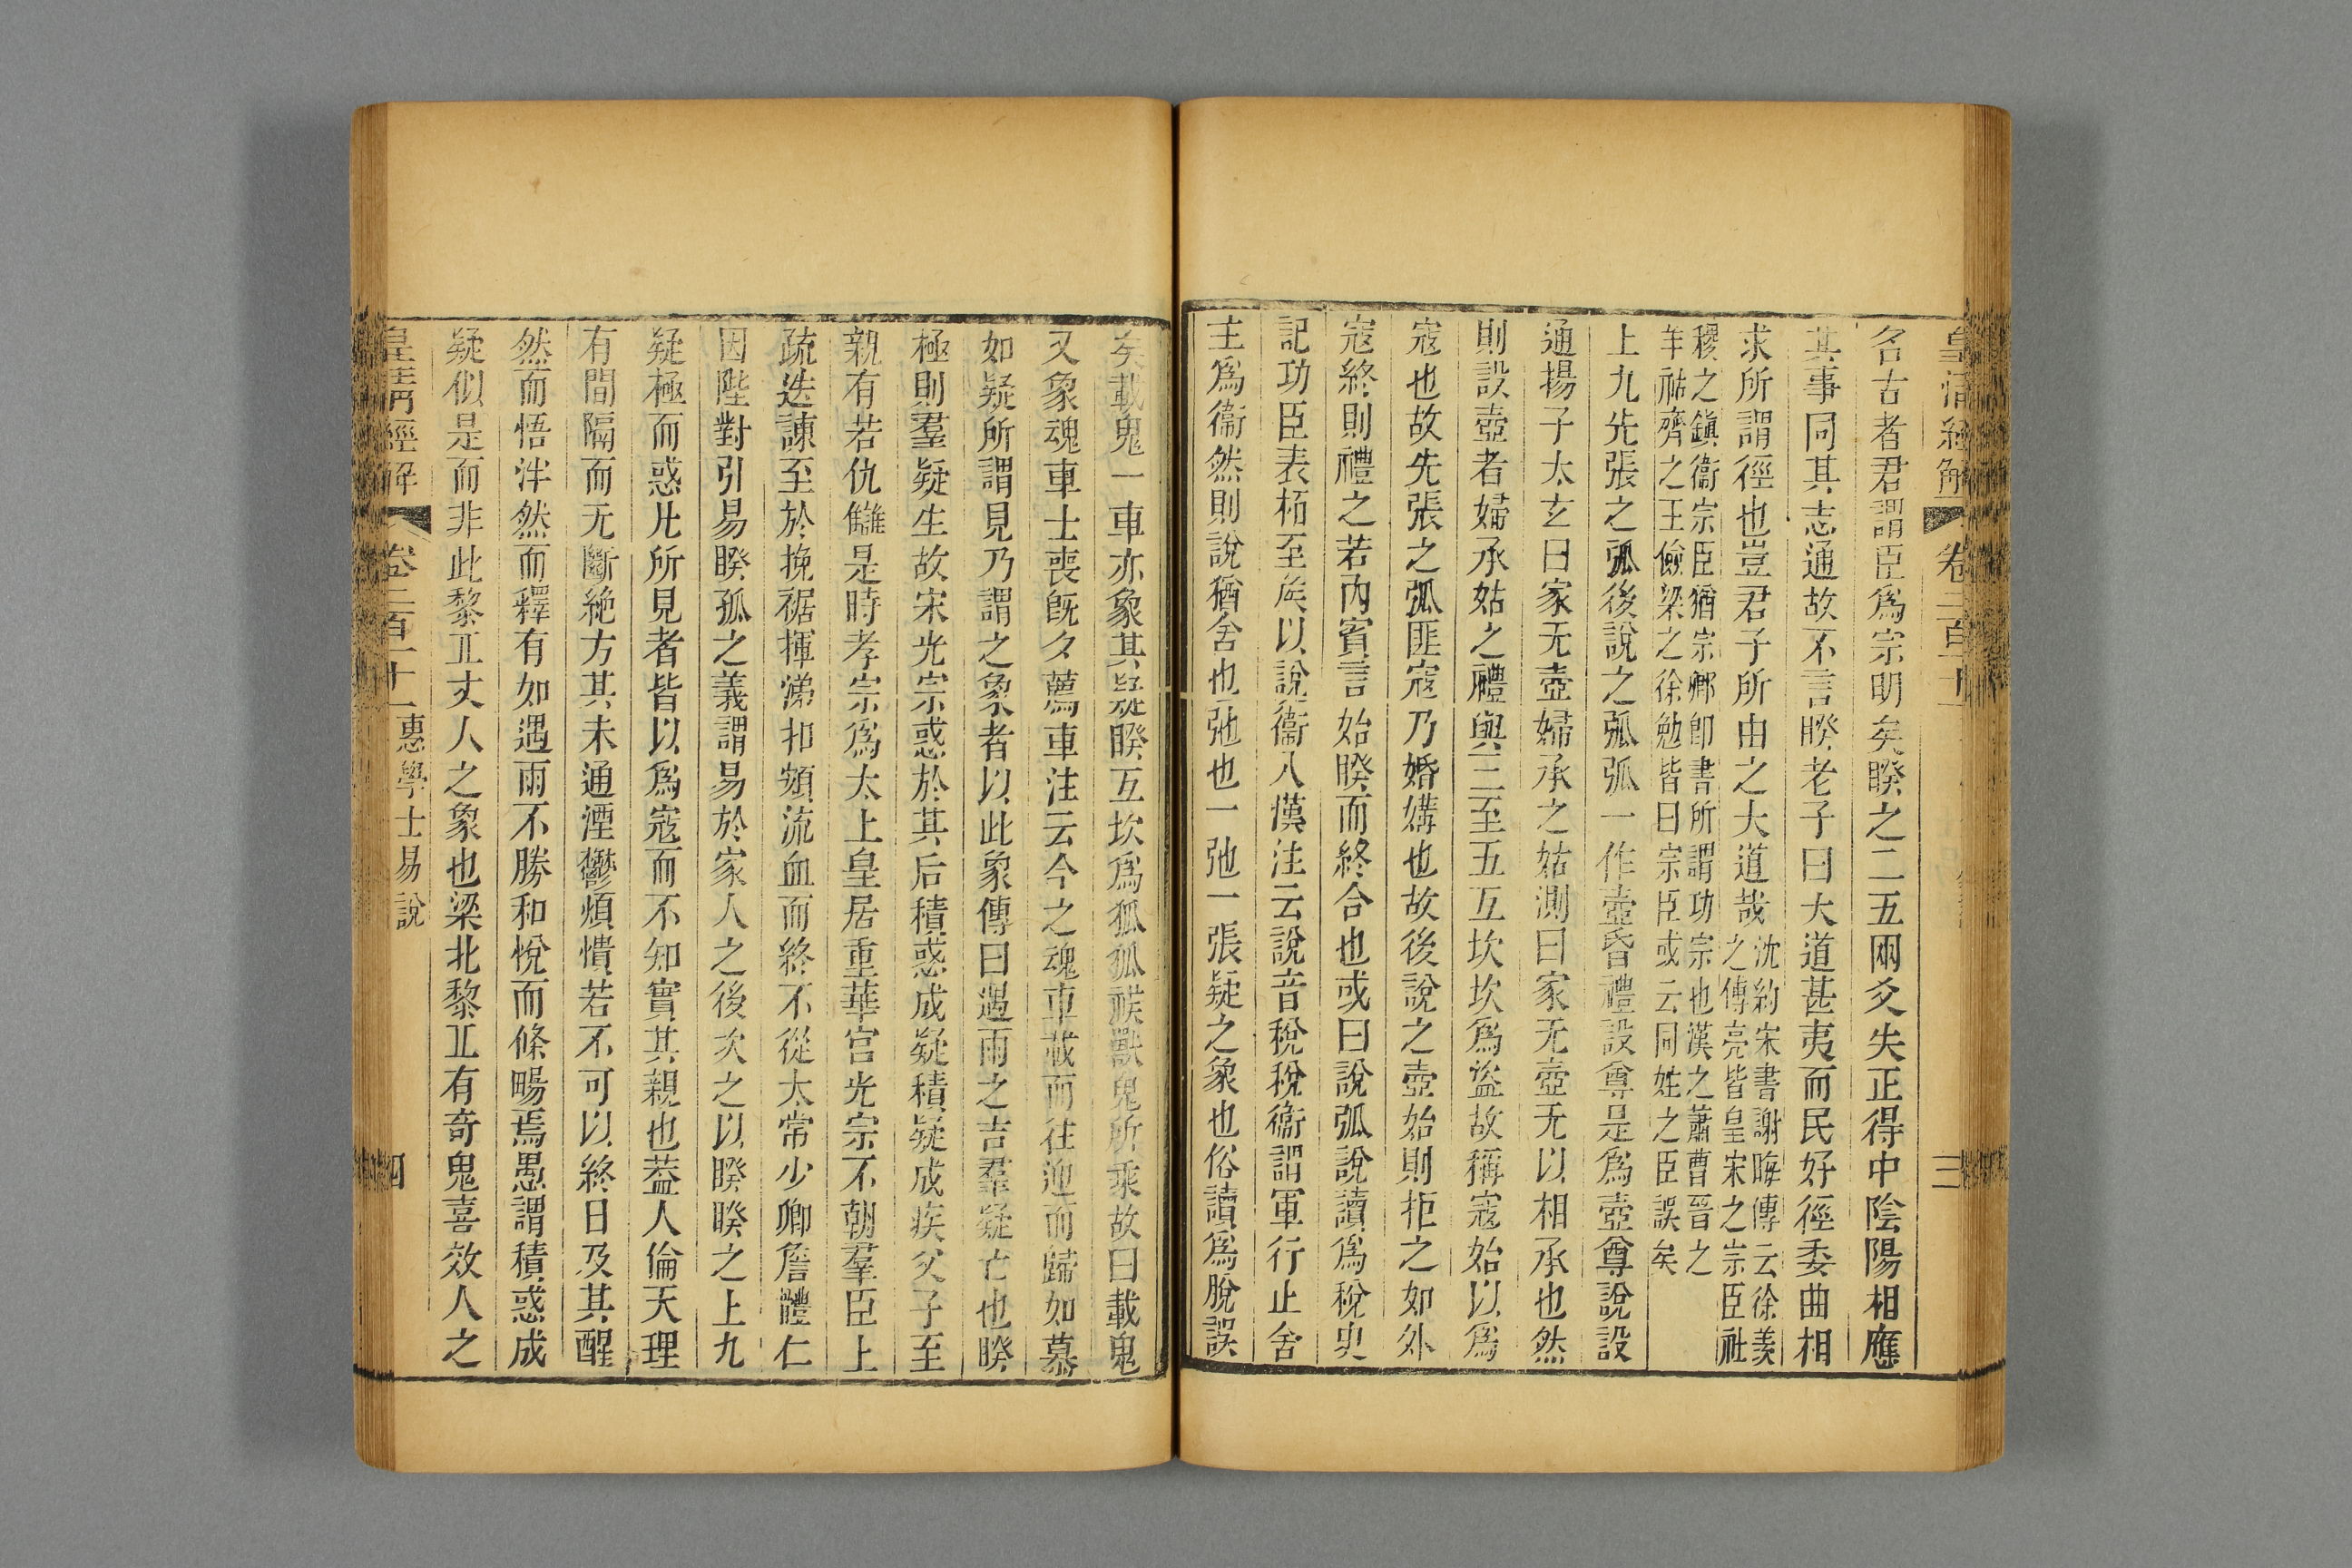 皇清經解
卷二百十一
三
名古者君謂臣爲宗明矣睽之二五兩爻失正得中陰陽相應
其事同其志通故不言睽老子曰大道甚夷而民好徑委曲相
求所謂徑也豈君子所由之大道哉
沈約宋書謝晦傳云徐羡
之傅亮皆皇宋之宗臣社
稷之鎮衞宗臣猶宗卿卽書所謂功宗也漢之蕭曹晉之
羊祜齊之王儉梁之徐勉皆曰宗臣或云同姓之臣誤矣
上九先張之弧後說之弧弧一作壺昏禮設尊是爲壺尊說設
通揚子太玄曰家无壺婦承之姑測曰家无壺无以相承也然
則設壺者婦承姑之禮與三至五互坎坎爲盜故稱寇始以爲
寇也故先張之弧匪寇乃婚媾也故後說之壺始則拒之如外
寇終則禮之若內賓言始睽而終合也或曰說弧說讀爲稅史
記功臣表柘至矦以說衞入漢注云說音稅稅衞謂軍行止舍
主爲衞然則說猶舍也弛也一弛一張疑之象也俗讀爲脫誤
矣載鬼一車亦象其疑睽互坎爲狐狐祅獸鬼所乘故曰載鬼
又象魂車士喪旣夕薦車注云今之魂車載而往迎而歸如慕
如疑所謂見乃謂之象者以此象傳曰遇雨之吉羣疑亡也睽
極則羣疑生故宋光宗惑於其后積惑成疑積疑成疾父子至
親有若仇讎是時孝宗爲太上皇居重華宮光宗不朝羣臣上
疏迭諫至於挽裾揮涕扣頞流血而終不從太常少卿詹體仁
因陛對引易睽孤之義謂易於家人之後次之以睽睽之上九
疑極而惑凡所見者皆以爲寇而不知實其親也葢人倫天理
有間隔而无斷絶方其未通湮鬱煩憒若不可以終日及其醒
然而悟泮然而釋有如遇雨不勝和悅而條暢焉愚謂積惑成
疑似是而非此黎丠丈人之象也梁北黎丠有奇鬼喜效人之
皇淸經解
卷二百十一
惠學士易說
四